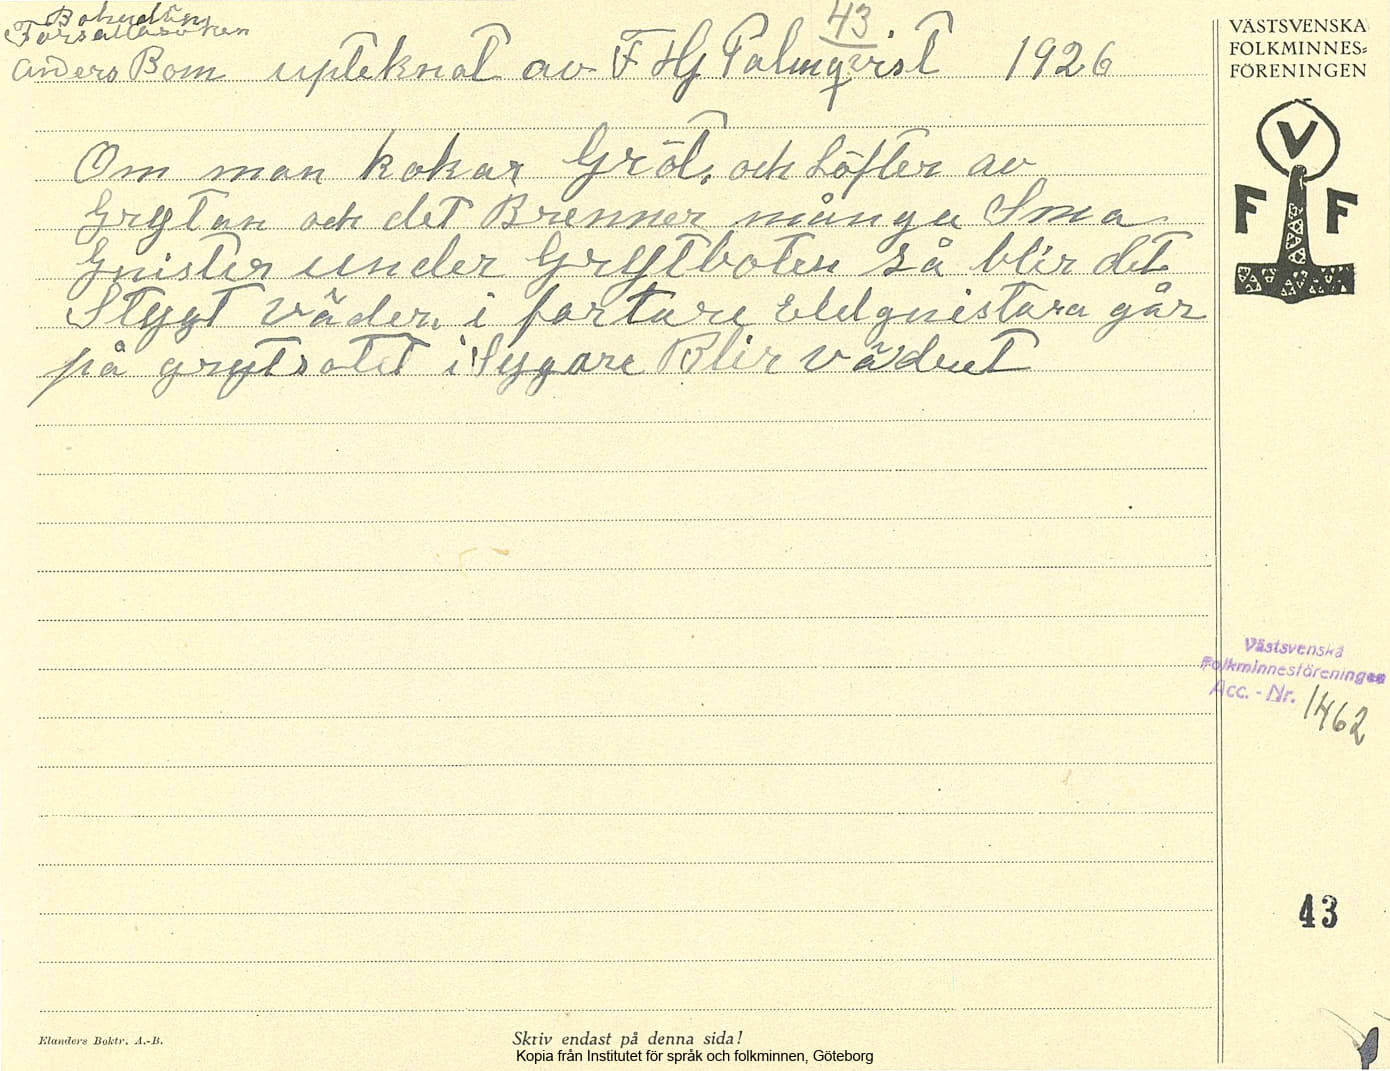 43
Bohuslän
Forsallasoknen
Anders Bom upteknat av F Hj Palmqvist 1926
Om man kokar Gröt, och Löfter av
Grytan och det Brenner många Sma
Gnister under Grytboten så blir det
Stygt väder, i fortare Eldgnistara går
på grytsotet i Sygare Blir vädret
VÄSTSVENSKA
FOLKMINNES-
FÖRENINGEN
V
F F
Västsvenska
Folkminnesföreningen
Acc. - Nr. 1462
43
Elanders Boktr. A.-B.
Skriv endast på denna sida!
Kopia från Institutet för språk och folkminnen, Göteborg